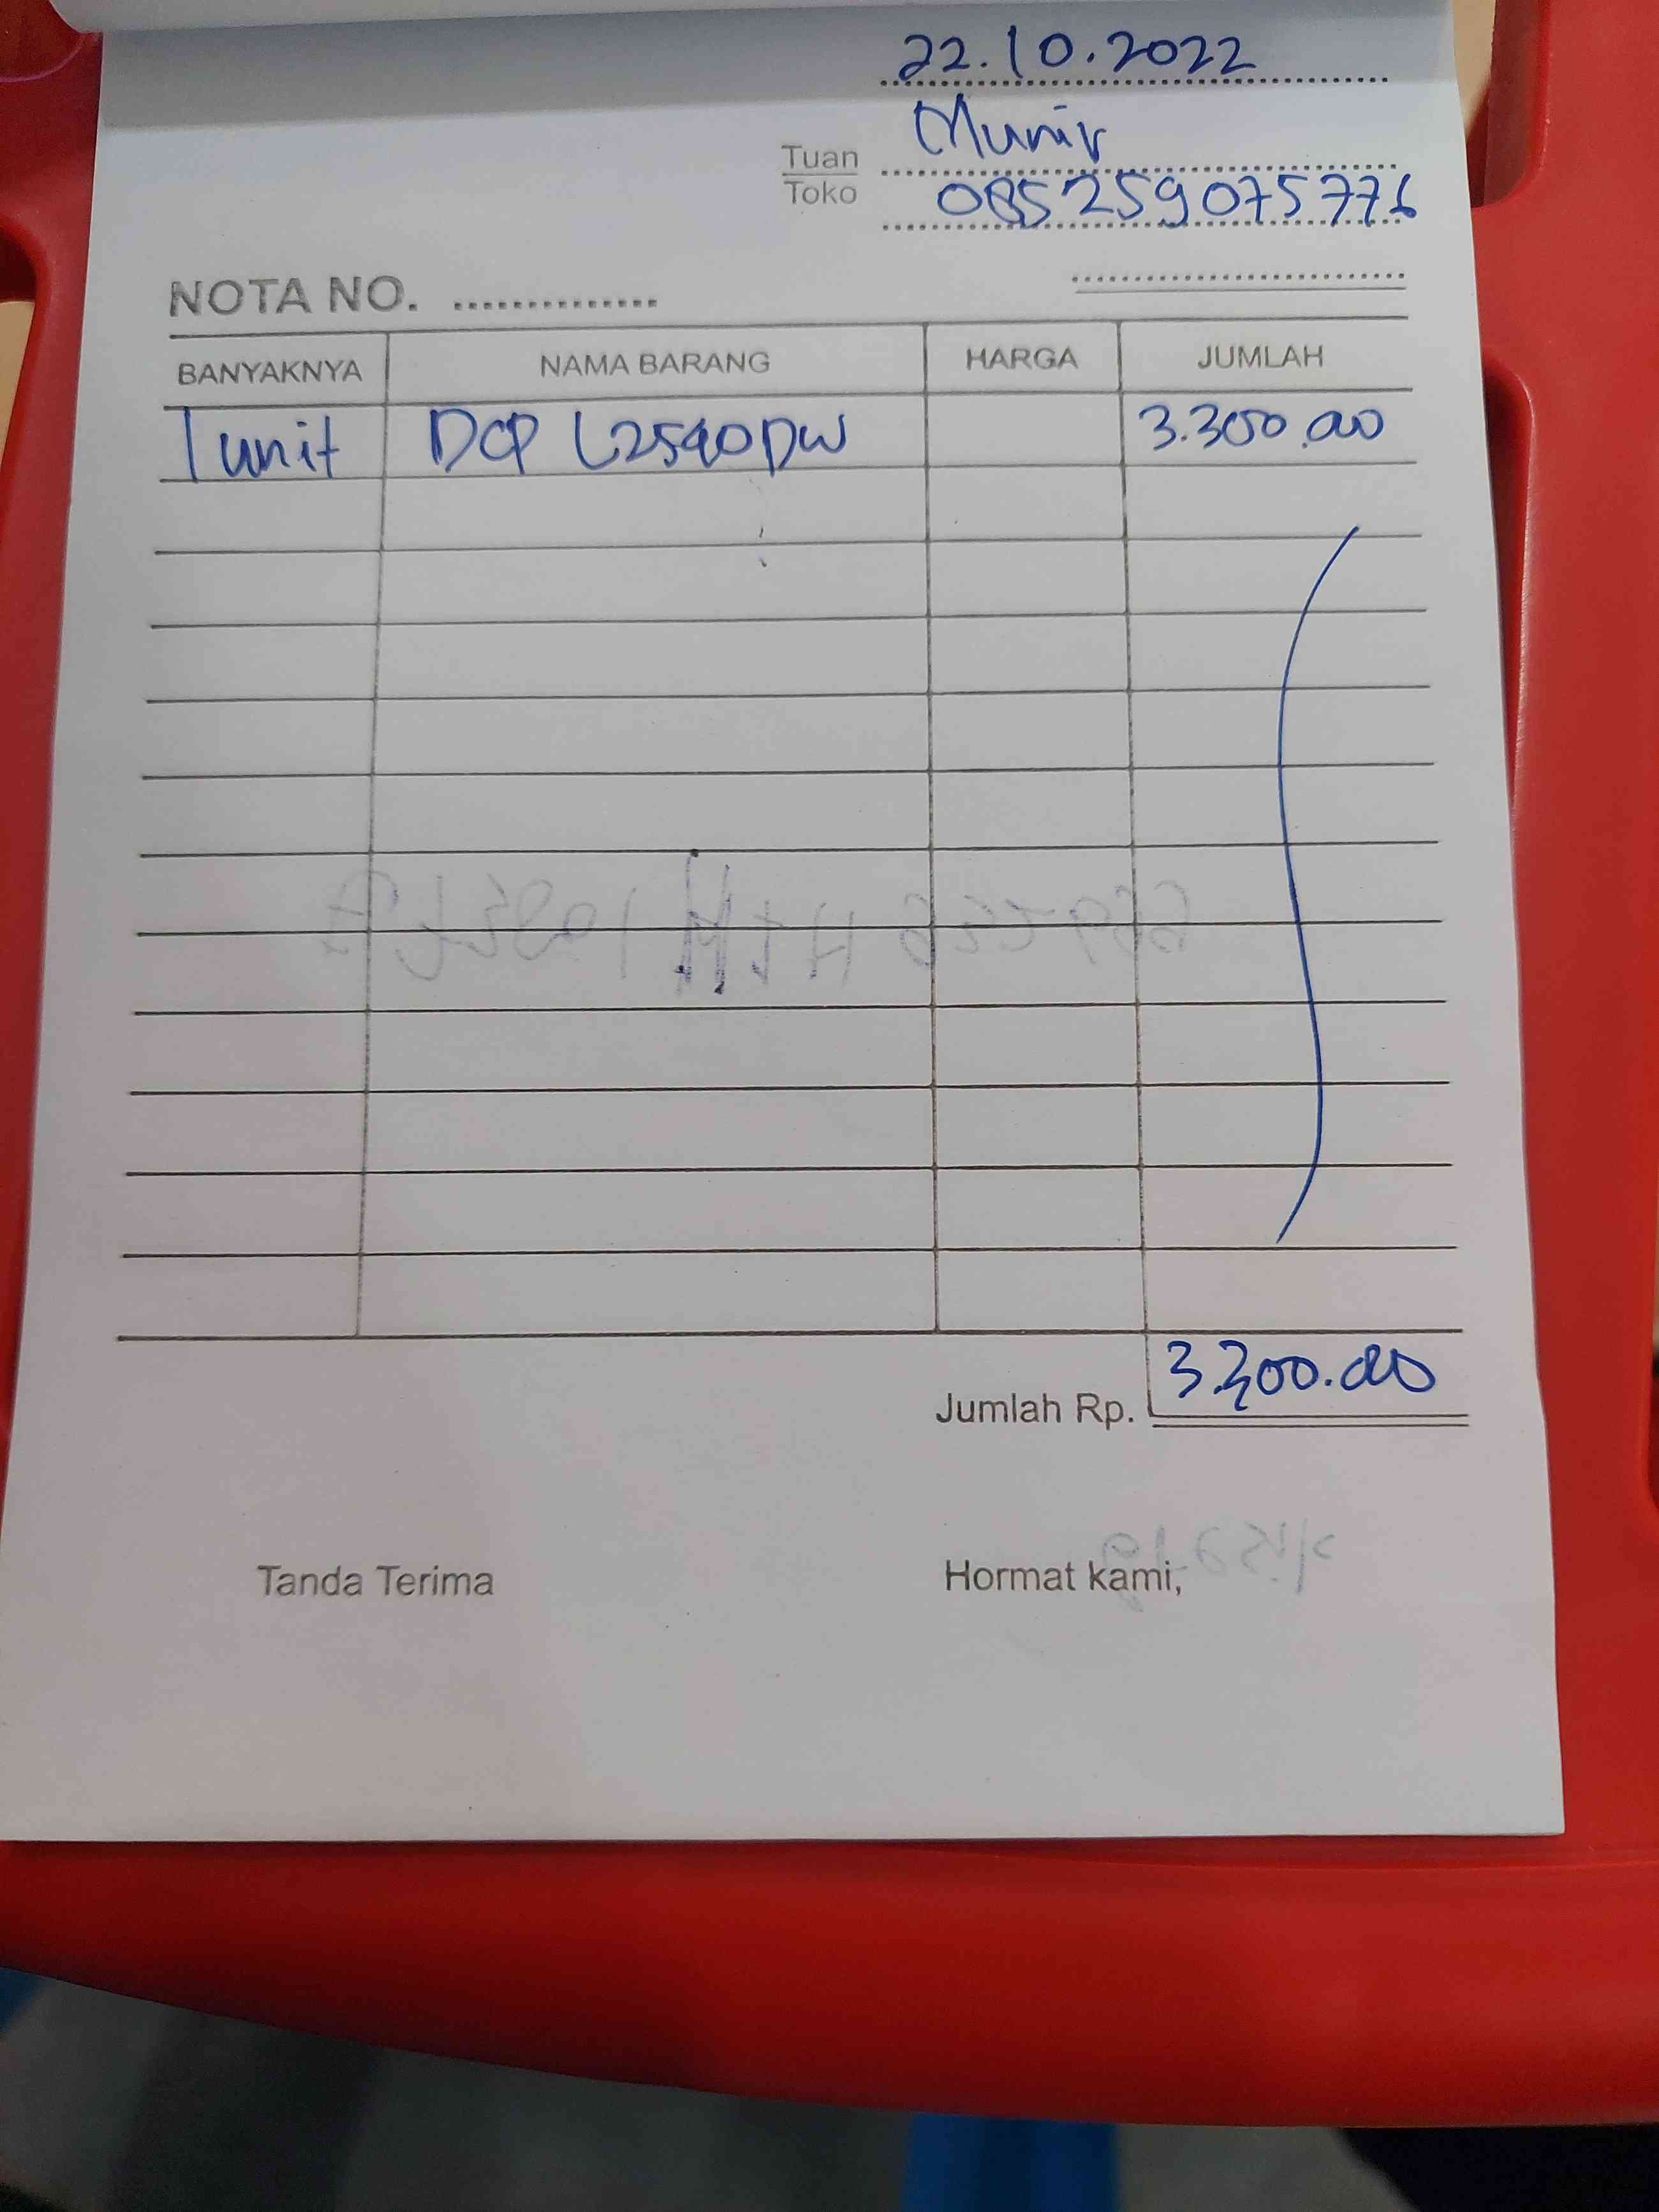 22.10.2022
Munir
Tuan
Toko
085259075776
NOTA NO. ..............
BANYAKNYA NAMA BARANG HARGA JUMLAH
1 unit DCP L2540DW 3.300.000
Jumlah Rp. 3.300.000
Tanda Terima Hormat kami,